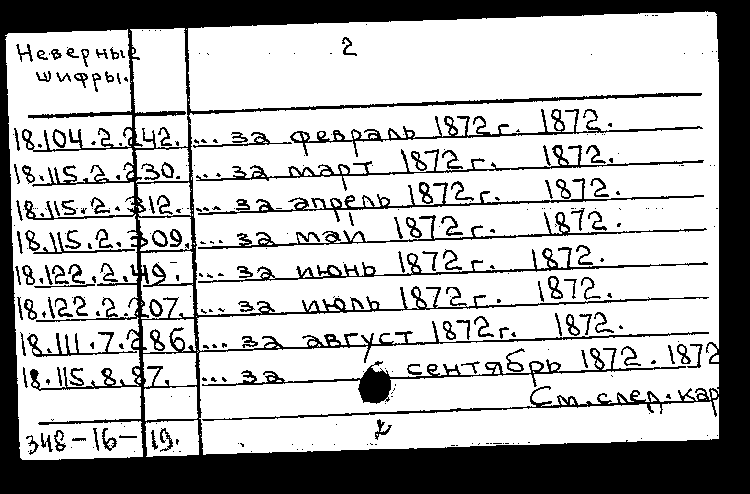 Неверные 2
шифры.
18.104.2.242. ... за февраль 1872 г. 1872.
18.115.2.230. ... за март 1872 г. 1872.
18.115.2.312. ... за апрель 1872 г. 1872.
18.115.2.309. ... за май 1872 г. 1872.
18.122.2.49. ... за июнь 1872 г. 1872.
18.122.2.207. ... за июль 1872 г. 1872.
18.111.7.286. ... за август 1872 г. 1872.
18.115.8.87. ... за сентябрь 1872. 1872
См. след. кар
348-16-19.